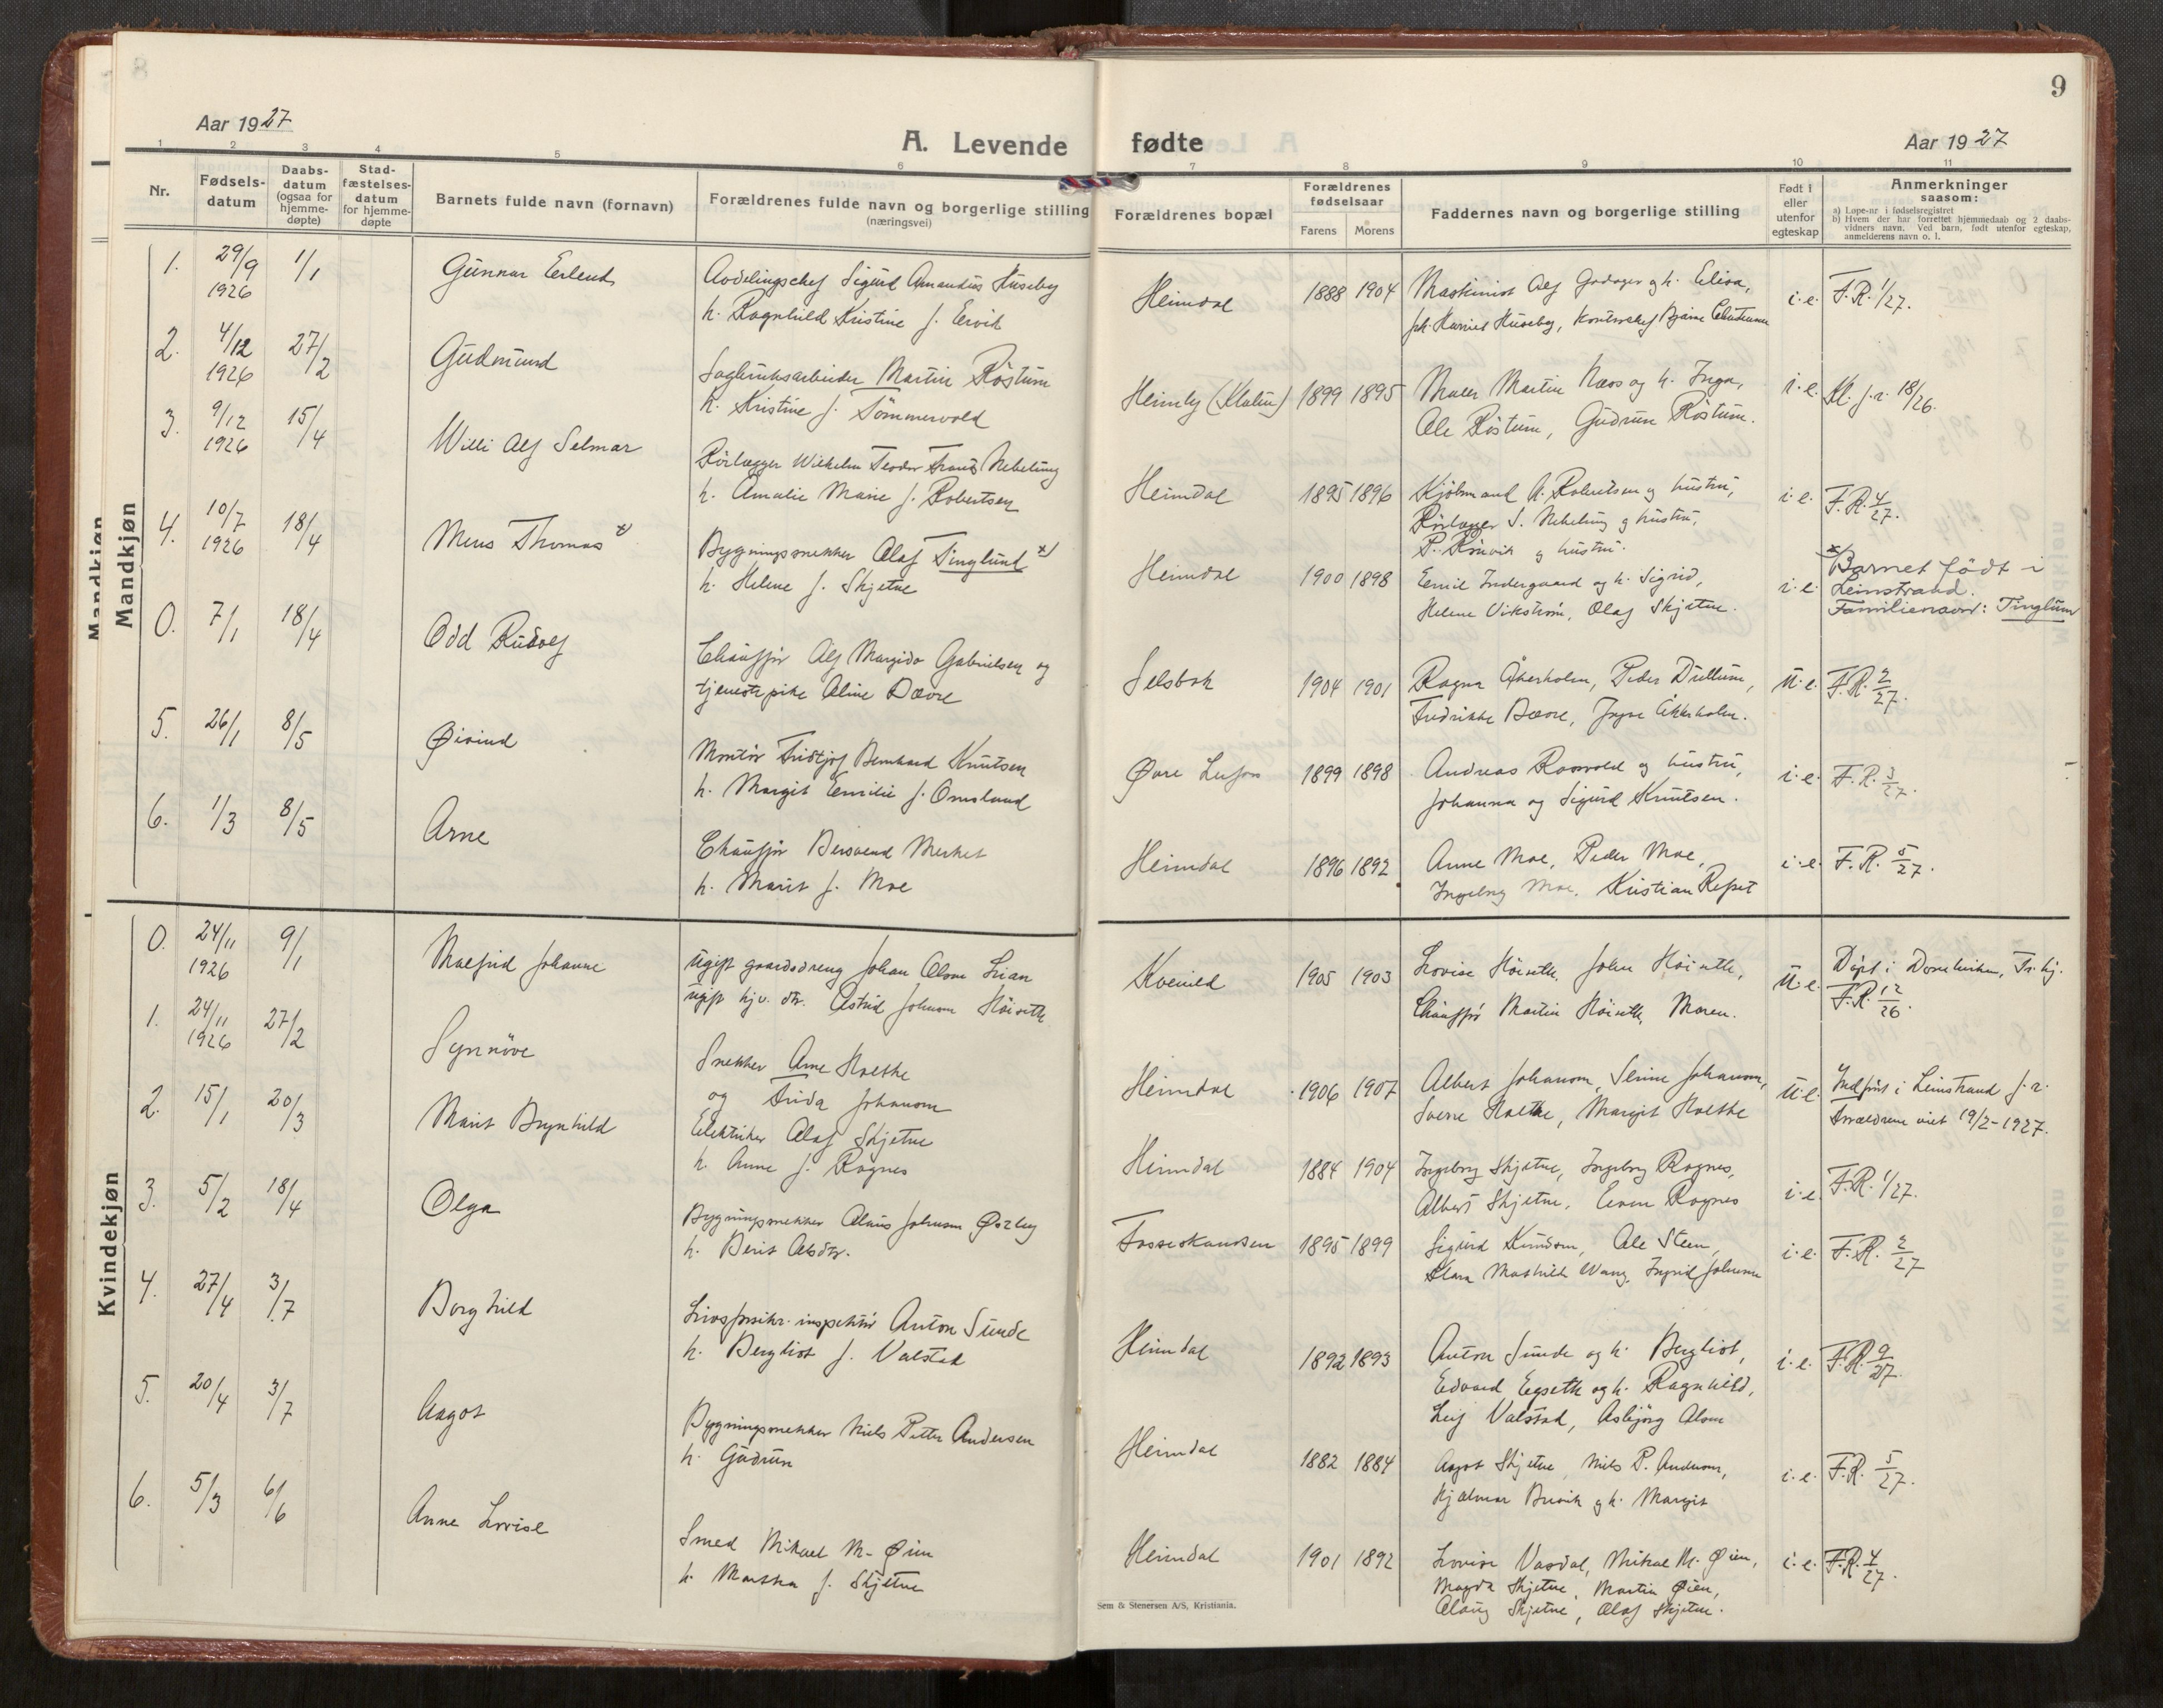 Aar 1927
A. Levende
1 2 3 4 5 6
Nr.
Fødsels-
datum
Daabs-
datum
(ogsaa for
hjemme-
døpte)
Stad-
fæstelses-
datum
for hjemme-
døpte
Barnets fulde navn (fornavn)
Forældrenes fulde navn og borgerlige stilling
(næringsvei)
Mandkjøn
Mandkjøn
1. 29/9 1926 1/1 Gunnar Erlend
Avdelingschef Sigurd Amandus Huseby
h. Ragnhild Kristine f. Ervik
2. 4/12 1926 27/2 Gudmund
Sagbruksarbeider Martin Röstum
h. Kristine f. Tömmervold
3. 9/12 1926 15/4 Willi Alf Selmar
Rörlægger Wilhelm Teodor Franz Nebelung
h. Amalie Marie f. Robertsen
4. 10/7 1926 18/4 Mens Thomas x)
Bygningssnekker Olaf Tinglund x)
h. Helene f. Skjetne
0. 7/1 18/4 Odd Rudolf
Chauffør Alf Margido Gabrielsen og
tjenestepike Aline Dævre
5. 26/1 8/5 Øivind
Montör Fridtjof Bernhard Knutsen
h. Margit Emilie f. Omslaand
6. 1/3 8/5 Arne
Chauffør Bersvend Merket
h. Marit f. Moe
Kvindekjøn
0. 24/11 1926 9/1 Malfrid Johanne
Ugift gaardsdreng Johan Olsen Lian
ugift hj.v. dtr. Astrid Johnsen Höiseth
1. 24/11 1926 27/2 Synnöve
Snekker Arne Holthe
og Frida Johansen
2. 15/1 20/3 Marit Brynhild
Elektriker Olaf Skjetne
h. Anne f. Rognes
3. 5/2 18/4 Olga
Bygningssnekker Johnsen
h. Berit Olsdtr.
4. 27/4 3/7 Borghild
Livsforsikr. inspektör Anton Sunde
h. Bergliot f. Valstad
5. 20/4 3/7 Aagot
Bygningssnekker Niels Petter Andersen
h. Gudrun
6. 5/3 6/6 Anne Lovise
Smed Mikael M. Øien
h. Martha f. Skjetne
9
fødte
Aar 1927
7 8 9 10 11
Forældrenes bopæl
Forældrenes
fødselsaar
Farens Morens
Faddernes navn og borgerlige stilling
Født i
eller
utenfor
egteskap
Anmerkninger
saasom:
a) Løpe-nr i fødselsregistret
b) Hvem der har forrettet hjemmedaab og 2 daabs-
vidners navn. Ved barn, født utenfor egteskap,
anmelderens navn o. l.
Heimdal 1888 1904 Maskinist Alf og h. Elisa, i.e. F.R. 1/27.
frk. Huseby, Kontorchef Bjarne
Heimly 1899 1895 Maler Martin Næss og h. Inga, i.e. Kl. f.r. 18/26.
Ole Röstum, Gudrun Röstum.
Heimdal 1895 1896 Kjöbmand A. Robertsen og hustru, i.e. F.R. 4/27.
Rörlægger S. Nebelung og hustru,
P. Rönvik og hustru.
Heimdal 1900 1898 Emil Indergaard og h. Sigrid, i.e.
Helene Vikström, Olaf Skjetne.
x) Barnet født i
Leinstrand.
Familienavn: Tinglum
Selsbak 1904 1901 Ragna Åkerholm, Peder Dullum, u.e. F.R. 2/27.
Fredrikke Dævre, Åkerholm.
Øvre 1899 1898 Andreas og hustru, i.e. F.R. 3/27.
Johanna og Sigurd Knutsen.
Heimdal 1896 1892 Anne Moe, Peder Moe, i.e. F.R. 5/27.
Ingeborg Moe. Kristian
Kvenild 1905 1903 Lovise Höiseth, John Höiseth, u.e. Döpt i Domkirken, Tr.hj.
Chauffør Martin Höiseth, Maren. F.R. 12/26.
Heimdal 1906 1907 Albert Johansen, Johansen, u.e. Indført i Leinstrand f.r.
Sverre Holthe, Margit Holthe Forældrene viet 19/2-1927.
Heimdal 1884 1904 Ingeborg Skjetne, Ingeborg Rognes, i.e. F.R. 1/27.
Albert Skjetne, Even Rognes
Fosseskandsen 1895 1899 Sigurd Knudsen, Ole Steen, i.e. F.R. 2/27
Klara Mathilde Wang, Ingrid Johnsen
Heimdal 1892 1893 Anton Sunde og h. Bergliot, i.e. F.R. 9/27.
Edvard Egseth og h. Ragnhild,
Leif Valstad, Asbjörg Olsen
Heimdal 1882 1884 Aagot Skjetne, Niels P. Andersen, i.e. F.R. 5/27.
Hjalmar og h. Margit
Heimdal 1901 1892 Lovise Vasdal, Mikael M. Øien, i.e. F.R. 4/27.
Magda Skjetne, Martin Øien,
Skjetne, Olaf Skjetne.
Sem & Stenersen A/S, Kristiania.